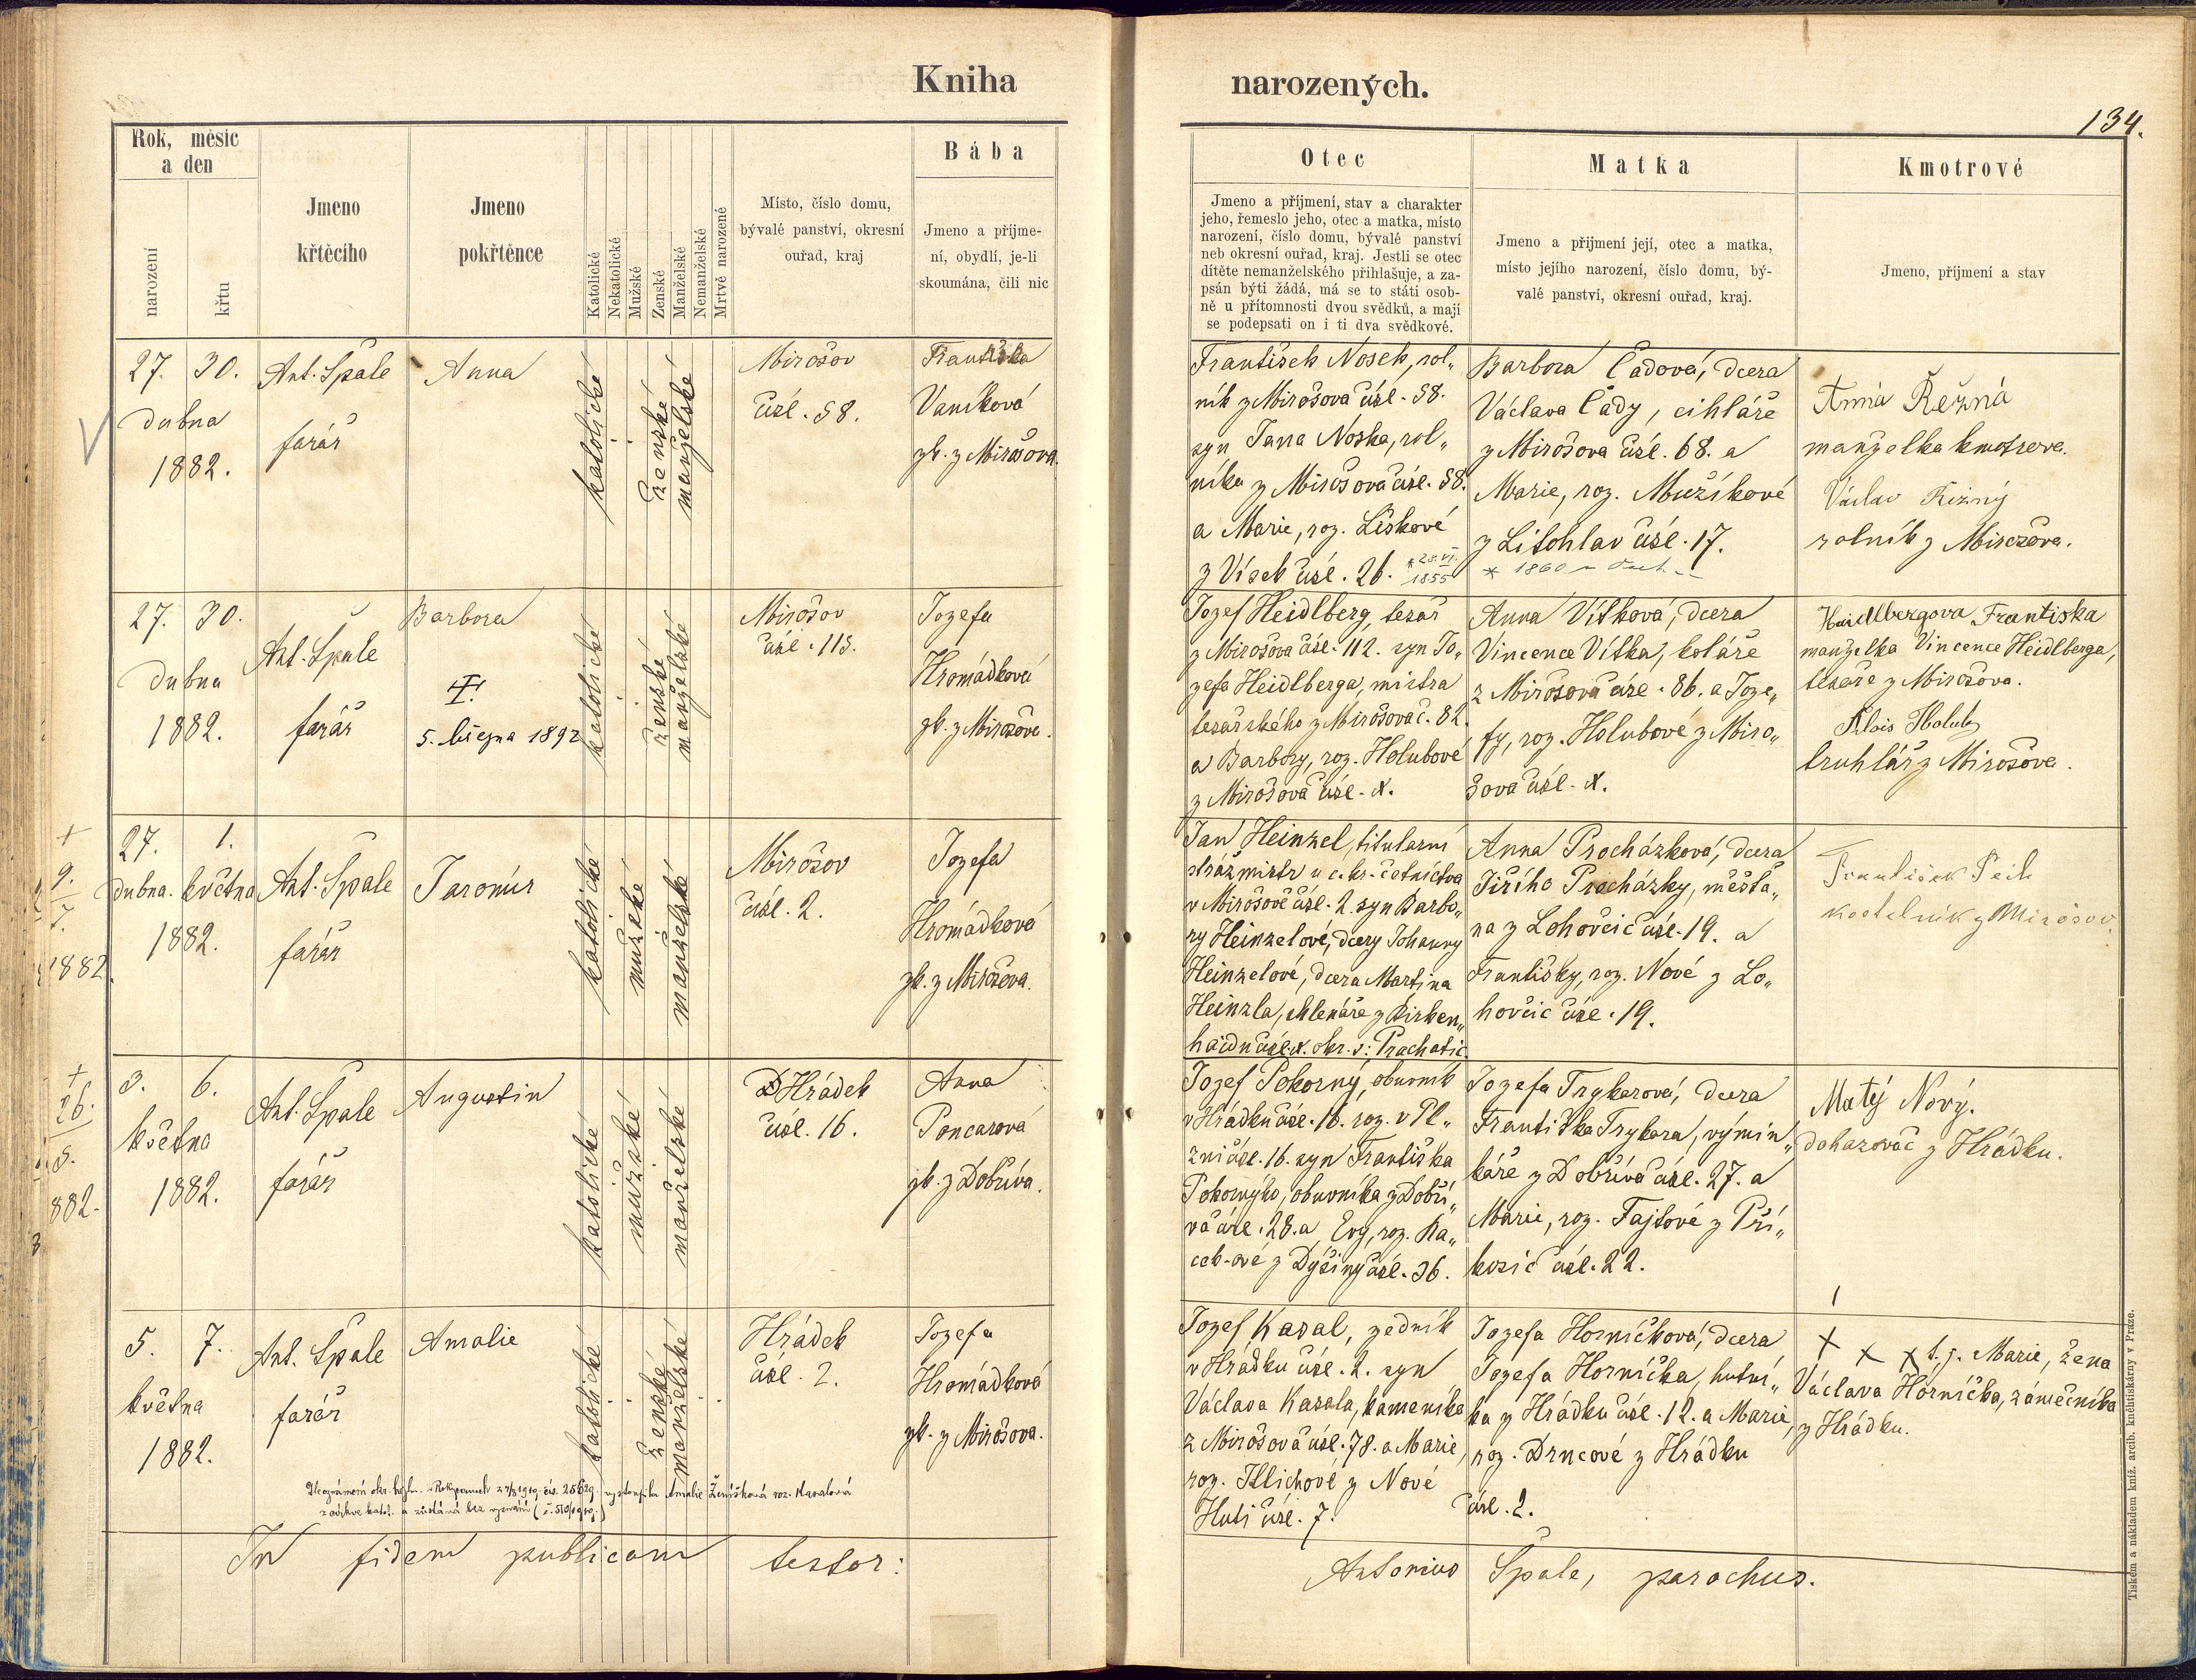 Kniha narozených.
134.
Rok, měsíc
a den
narození
křtu
Jmeno
křtěcího
Jmeno
pokřtěnce
Katolické
Nekatolické
Mužské
Ženské
Manželské
Nemanželské
Mrtvě narozené
Místo, číslo domu,
bývalé panství, okresní
ouřad, kraj
Bába
Jmeno a příjme-
ní, obydlí, je-li
skoumána, čili nic
Otec
Jmeno a příjmení, stav a charakter
jeho, řemeslo jeho, otec a matka, místo
narození, číslo domu, bývalé panství
neb okresní ouřad, kraj. Jestli se otec
dítěte nemanželského přihlašuje, a za-
psán býti žádá, má se to státi osob-
ně u přítomnosti dvou svědků, a mají
se podepsati on i ti dva svědkové.
Matka
Jmeno a přijmení její, otec a matka,
místo jejího narození, číslo domu, bý-
valé panství, okresní ouřad, kraj.
Kmotrové
Jmeno, příjmení a stav
27. 30.
dubna
1882.
Ant. Špale
farář
Anna
katolické
ženské
manželské
Mirošov
čísl. 58.
Františka
Vaníková
zk. z Mirošova.
František Nosek, rol„
ník z Mirošova čísl. 58.
syn Jana Noska, rol„
níka z Mirošova čísl. 58.
a Marie, roz. Liškové
z Vísek čísl. 26. * 28.VI.
1855
Barbora Čadová, dcera
Václava Čady, cihláře
z Mirošova čísl. 68. a
Marie, roz. Mužíkové
z Litohlav čísl. 17.
* 1860
Anna Řežná
manželka kmotrova.
Václav Řežný
rolník z Mirošova.
27. 30.
dubna
1882.
Ant. Špale
farář
Barbora
†
5. března 1892
katolické
ženské
manželské
Mirošov
čísl. 113.
Jozefa
Hromádková
zk. z Mirošova.
Jozef Heidlberg, tesař
z Mirošova čísl. 112. syn Jo„
zefa Heidlberga, mistra
tesařského z Mirošova č. 82.
a Barbory, roz. Holubové
z Mirošova čísl. X.
Anna Vítková, dcera
Vincence Vítka, koláře
z Mirošova čísl. 86. a Joze„
fy, roz. Holubové z Miro„
šova čísl. X.
Heidlbergova Frantiska
manželka Vincence Heidlberga,
tesaře z Mirošova.
Alois Holub
truhlář z Mirošova.
+
9.
7.
1882.
27. 1.
dubna. května
1882.
Ant. Špale
farář
Jaromír
katolické
mužské
manželské
Mirošov
čísl. 2.
Jozefa
Hromádková
zk. z Mirošova.
Jan Heinzel, titularní
strážmistr u c. kr. četnictva
v Mirošově čísl. 2. syn Barbo„
ry Heinzelové, dcery Johanny
Heinzelové, dcera Martina
Heinzla, sklenáře z Birken„
haidu čísl. X. okr. s: Prachatic.
Anna Procházková, dcera
Jiřího Procházky, měšťa„
na z Lohovčic čísl. 19. a
Františky, roz. Nové z Lo„
hovčic čísl. 19.
František Peik
kostelník z Mirošov.
+
26.
5.
882.
3. 6.
května
1882.
Ant. Špale
farář
Augustin
katolické
mužské
manželské
Hrádek
čísl. 16.
Anna
Poncarová
zk. z Dobříva.
Jozef Pokorný, obuvník
v Hrádku čísl. 16. roz. v Pl„
zni čísl. 16. syn Františka
Pokorného, obuvníka z Dobří„
va čísl. 28. a Evy, roz. Ka„
ceb-ové z Dýšiny čísl. 36.
Jozefa Trykarová, dcera
Františka Trykara, výmin„
káře z Dobříva čísl. 27. a
Marie, roz. Fajtové z Pří„
kosic čísl. 22.
Matěj Nový.
dohazovač z Hrádku.
5. 7.
května
1882.
Ant. Špale
farář
Amalie
katolické
ženské
manželské
Hrádek
čísl. 2.
Jozefa
Hromádková
zk. z Mirošova.
Jozef Kasal, zedník
v Hrádku čísl. 2. syn
Václava Kasala, kameníka
z Mirošova čísl. 78. a Marie,
roz. Illichové z Nové
Huti čísl. 7.
Jozefa Horníčková, dcera
Jozefa Horníčka, hutní„
ka z Hrádku čísl. 12. a Marie,
roz. Drncové z Hrádku
čísl. 2.
x x x t. j. Marie, žena
Václava Horníčka, zámečníka
z Hrádku.
vystoupila Amalie Ženíšková roz. Kasalová
z církve katol. a zůstává bez vyznání
In fidem publicam testor:
Antonius Špale, parochus.
Tiskem a nákladem kníž. arcib. knihtiskárny v Praze.